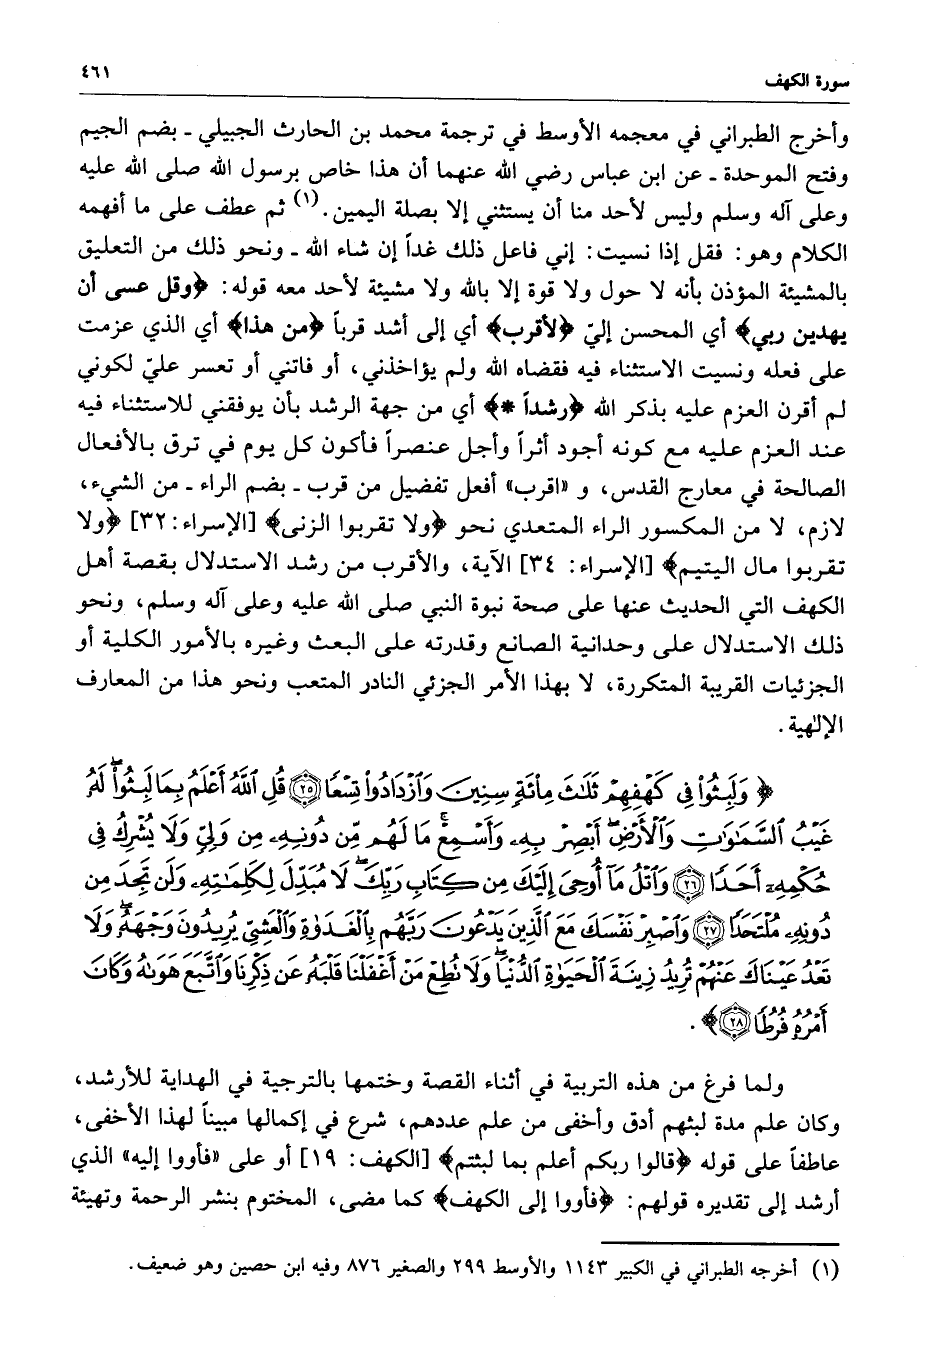 سورة الكهف ٤٦١
وأخرج الطبراني في معجمه الأوسط في ترجمة محمد بن الحارث الجبيلي ـ بضم الجيم
وفتح الموحدة ـ عن ابن عباس رضي الله عنهما أن هذا خاص برسول الله صلى الله عليه
وعلى آله وسلم وليس لأحد منا أن يستثني إلا بصلة اليمين.(١) ثم عطف على ما أفهمه
الكلام وهو: فقل إذا نسيت: إني فاعل ذلك غداً إن شاء الله ـ ونحو ذلك من التعليق
بالمشيئة المؤذن بأنه لا حول ولا قوة إلا بالله ولا مشيئة لأحد معه قوله: ﴿وقل عسى أن
يهدين ربي﴾ أي المحسن إليّ ﴿لأقرب﴾ أي إلى أشد قرباً ﴿من هذا﴾ أي الذي عزمت
على فعله ونسيت الاستثناء فيه فقضاه الله ولم يؤاخذني، أو فاتني أو تعسر عليّ لكوني
لم أقرن العزم عليه بذكر الله ﴿رشداً *﴾ أي من جهة الرشد بأن يوفقني للاستثناء فيه
عند العزم عليه مع كونه أجود أثراً وأجل عنصراً فأكون كل يوم في ترق بالأفعال
الصالحة في معارج القدس، و «اقرب» أفعل تفضيل من قرب ـ بضم الراء ـ من الشيء،
لازم، لا من المكسور الراء المتعدي نحو ﴿ولا تقربوا الزنى﴾ [الإسراء: ٣٢] ﴿ولا
تقربوا مال اليتيم﴾ [الإسراء: ٣٤] الآية، والأقرب من رشد الاستدلال بقصة أهل
الكهف التي الحديث عنها على صحة نبوة النبي صلى الله عليه وعلى آله وسلم، ونحو
ذلك الاستدلال على وحدانية الصانع وقدرته على البعث وغيره بالأمور الكلية أو
الجزئيات القريبة المتكررة، لا بهذا الأمر الجزئي النادر المتعب ونحو هذا من المعارف
الإلٰهية.
﴿ وَلَبِثُوا۟ فِى كَهْفِهِمْ ثَلَٰثَ مِا۟ئَةٍ سِنِينَ وَٱزْدَادُوا۟ تِسْعًا ۝٢٥ قُلِ ٱللَّهُ أَعْلَمُ بِمَا لَبِثُوا۟ۖ لَهُۥ
غَيْبُ ٱلسَّمَٰوَٰتِ وَٱلْأَرْضِۖ أَبْصِرْ بِهِۦ وَأَسْمِعْۚ مَا لَهُم مِّن دُونِهِۦ مِن وَلِىٍّ وَلَا يُشْرِكُ فِى
حُكْمِهِۦٓ أَحَدًا ۝٢٦ وَٱتْلُ مَآ أُوحِىَ إِلَيْكَ مِن كِتَابِ رَبِّكَۖ لَا مُبَدِّلَ لِكَلِمَٰتِهِۦ وَلَن تَجِدَ مِن
دُونِهِۦ مُلْتَحَدًا ۝٢٧ وَٱصْبِرْ نَفْسَكَ مَعَ ٱلَّذِينَ يَدْعُونَ رَبَّهُم بِٱلْغَدَوٰةِ وَٱلْعَشِىِّ يُرِيدُونَ وَجْهَهُۥۖ وَلَا
تَعْدُ عَيْنَاكَ عَنْهُمْ تُرِيدُ زِينَةَ ٱلْحَيَوٰةِ ٱلدُّنْيَاۖ وَلَا تُطِعْ مَنْ أَغْفَلْنَا قَلْبَهُۥ عَن ذِكْرِنَا وَٱتَّبَعَ هَوَىٰهُ وَكَانَ
أَمْرُهُۥ فُرُطًا ۝٢٨﴾.
ولما فرغ من هذه التربية في أثناء القصة وختمها بالترجية في الهداية للأرشد،
وكان علم مدة لبثهم أدق وأخفى من علم عددهم، شرع في إكمالها مبيناً لهذا الأخفى،
عاطفاً على قوله ﴿قالوا ربكم أعلم بما لبثتم﴾ [الكهف: ١٩] أو على «فأووا إليه» الذي
أرشد إلى تقديره قولهم: ﴿فأووا إلى الكهف﴾ كما مضى، المختوم بنشر الرحمة وتهيئة
(١) أخرجه الطبراني في الكبير ١١٤٣ والأوسط ٢٩٩ والصغير ٨٧٦ وفيه ابن حصين وهو ضعيف.